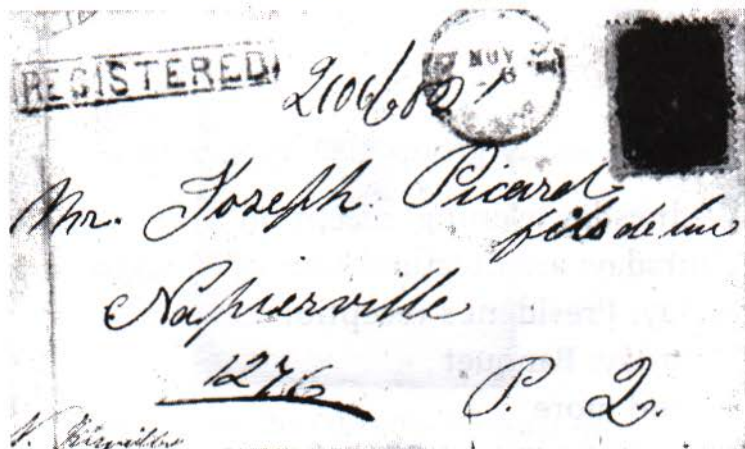 REGISTERED
NOV
Mr. Joseph Picard
fils de luc
Napierville
1276
P. Q.